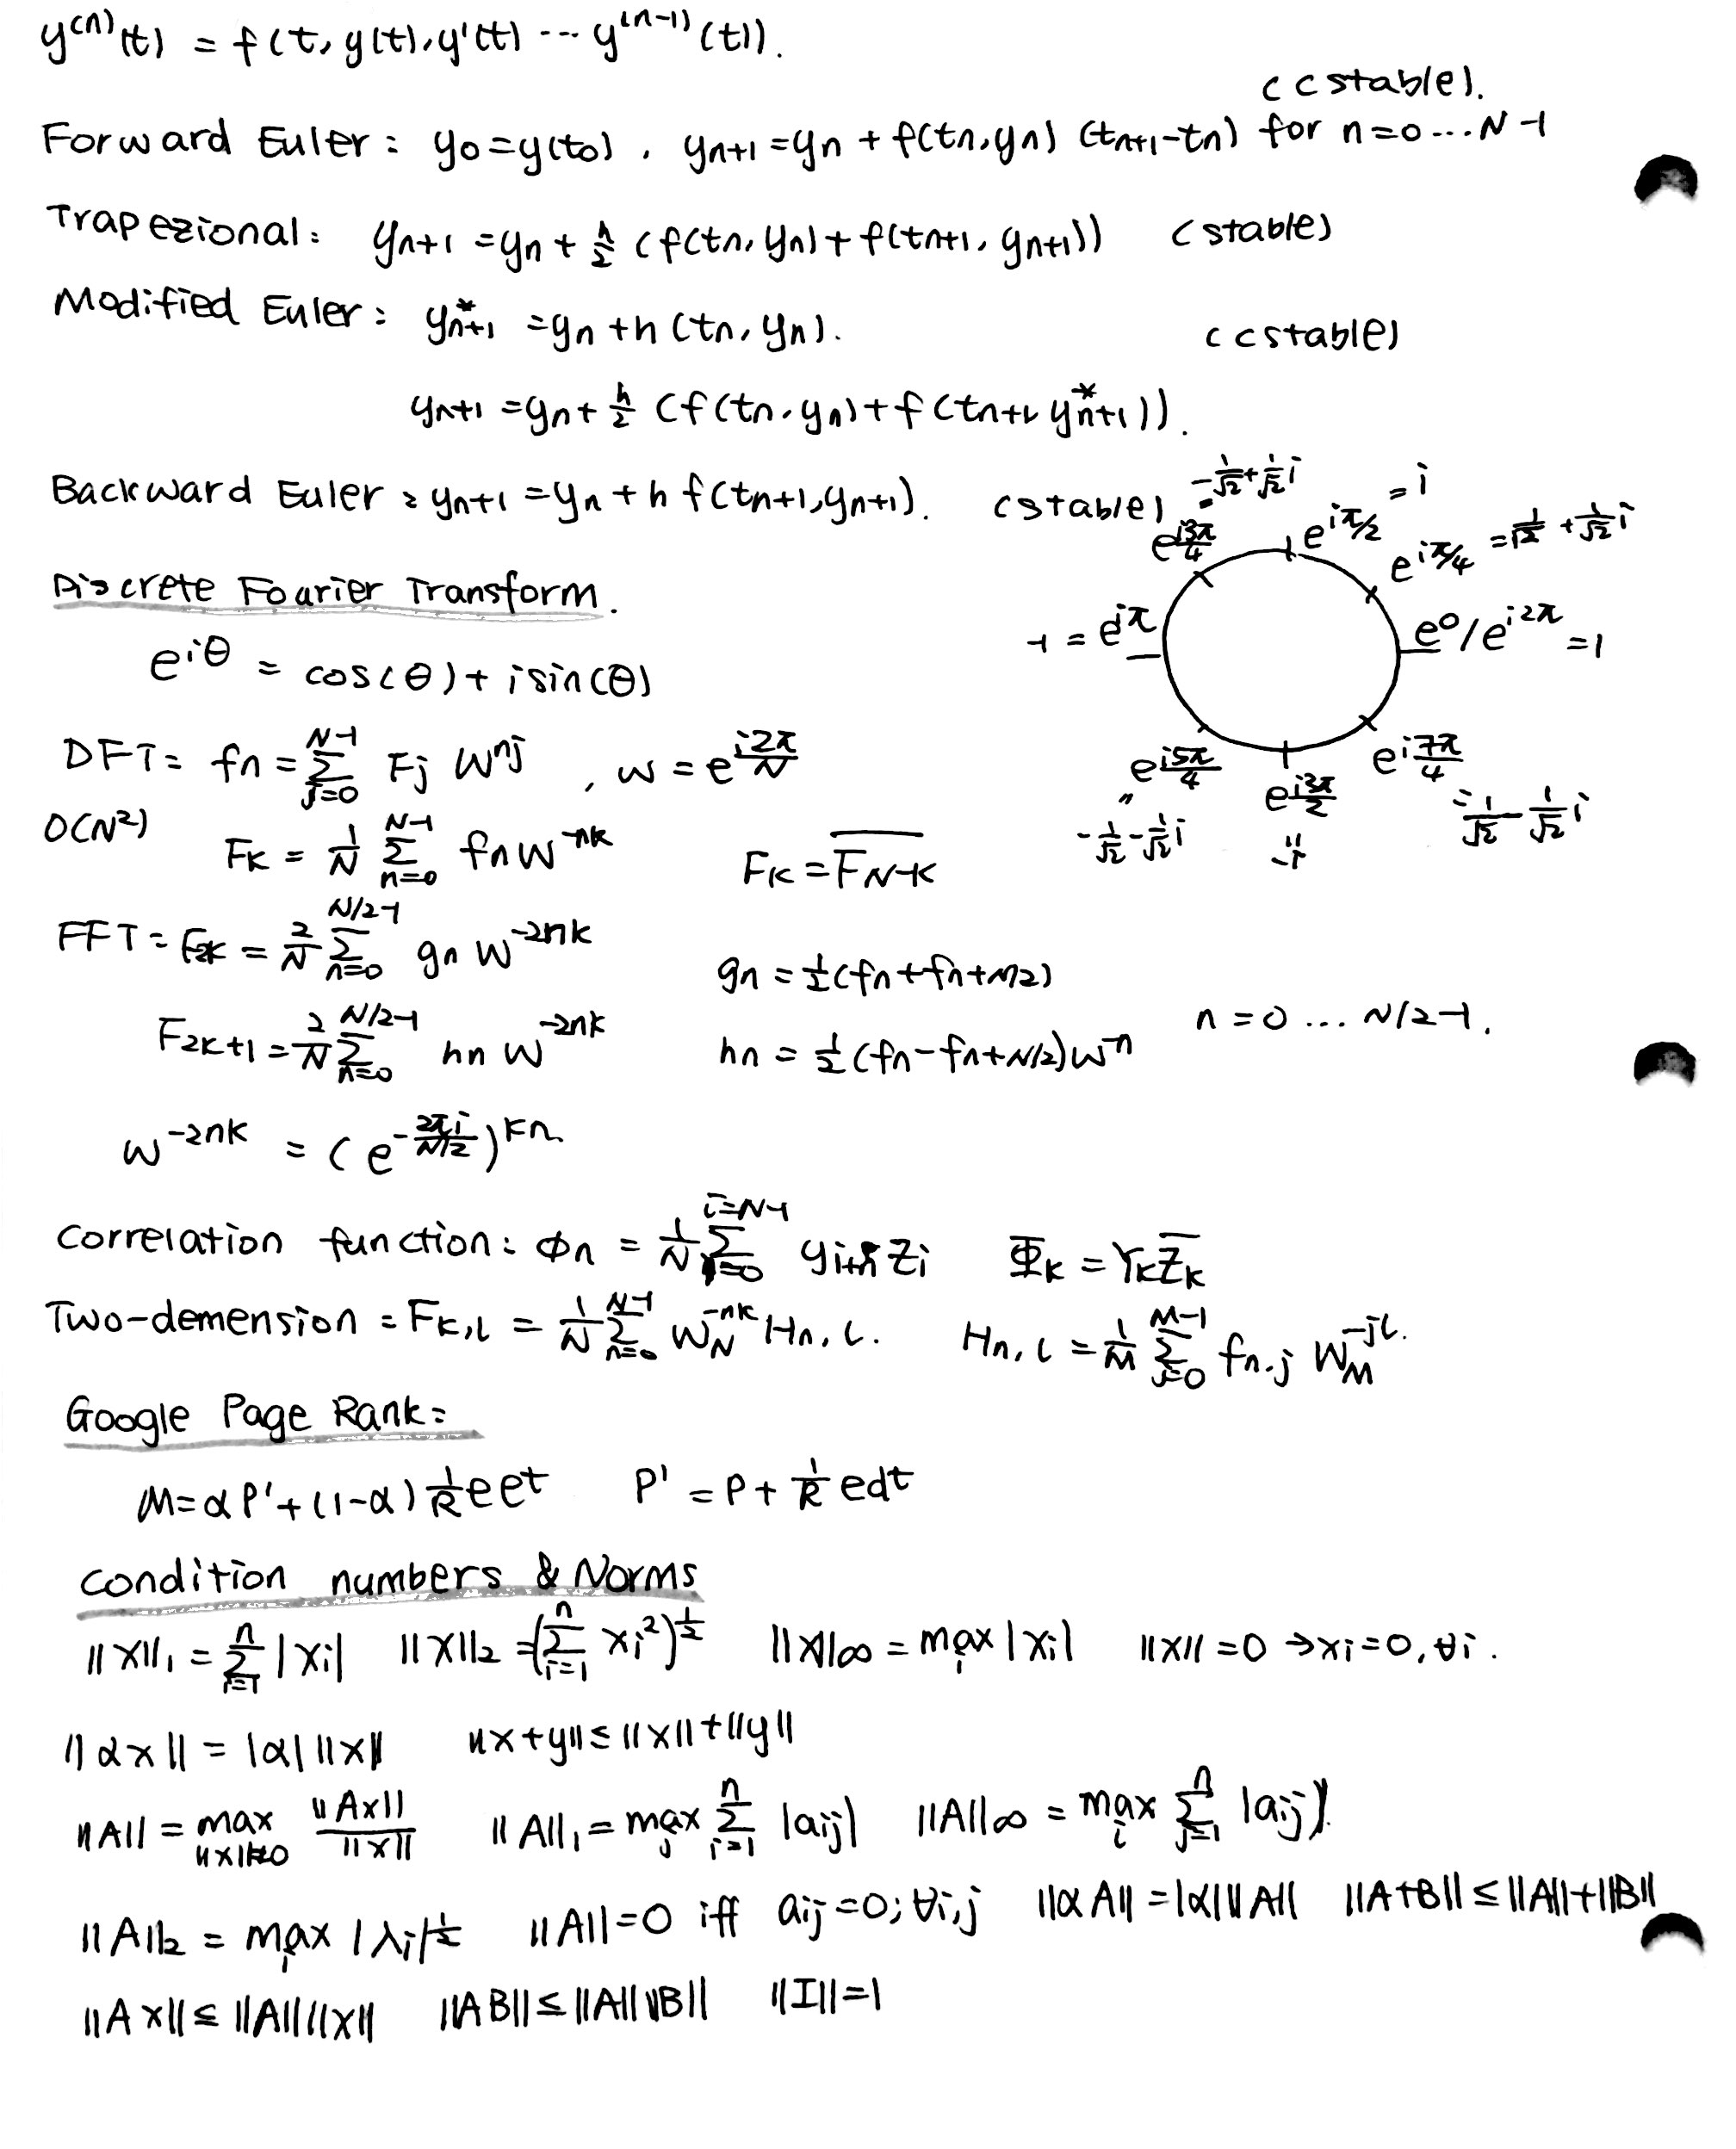 y^(n)(t) = f(t, y(t), y'(t) --- y^(n-1)(t)).
(cstable).
Forward Euler: y0=y(t0), yn+1=yn + f(tn,yn) (tn+1-tn) for n=0...N-1
Trapezional: yn+1 = yn + h/2 (f(tn, yn) + f(tn+1, yn+1)) (stable)
Modified Euler: y*n+1 = yn + h (tn, yn). (cstable)
yn+1 = yn + h/2 (f(tn, yn) + f(tn+1, y*n+1)).
Backward Euler: yn+1 = yn + h f(tn+1, yn+1). (stable)
-1/√2 + 1/√2 i = e^(i3π/4)
e^(iπ/2) = i
e^(iπ/4) = 1/√2 + 1/√2 i
-1 = e^(iπ)
e^0 / e^(i2π) = 1
e^(i5π/4) = -1/√2 - 1/√2 i
e^(i3π/2) = -i
e^(i7π/4) = 1/√2 - 1/√2 i
Discrete Fourier Transform.
e^(iθ) = cos(θ) + i sin(θ)
DFT: fn = Σ_(j=0)^(N-1) Fj W^(nj), w = e^(i2π/N)
O(N²) Fk = 1/N Σ_(n=0)^(N-1) fn W^(-nk) Fk = \overline{F_(N-k)}
FFT: F2k = 2/N Σ_(n=0)^(N/2-1) gn W^(-2nk) gn = 1/2 (fn + fn+N/2)
F2k+1 = 2/N Σ_(n=0)^(N/2-1) hn W^(-2nk) hn = 1/2 (fn - fn+N/2) W^(-n) n = 0 ... N/2-1.
W^(-2nk) = (e^(-2πi/(N/2)))^(kn)
Correlation function: φn = 1/N Σ_(i=0)^(i=N-1) yi+n zi Φk = Yk \overline{Zk}
Two-demension: Fk,l = 1/N Σ_(n=0)^(N-1) W_N^(-nk) Hn,l. Hn,l = 1/M Σ_(j=0)^(M-1) fn,j W_M^(-jl).
Google Page Rank:
M = αP' + (1-α) 1/R ee^t P' = P + 1/R ed^t
Condition numbers & Norms
||X||1 = Σ_(i=1)^n |xi| ||X||2 = (Σ_(i=1)^n xi²)^(1/2) ||X||∞ = max_i |xi| ||X|| = 0 → xi = 0, ∀i.
||αx|| = |α| ||x|| ||x+y|| ≤ ||x|| + ||y||
||A|| = max_(||x||≠0) ||Ax||/||x|| ||A||1 = max_j Σ_(i=1)^n |aij| ||A||∞ = max_i Σ_(j=1)^n |aij|.
||A||2 = max_i |λi|^(1/2) ||A|| = 0 iff aij = 0; ∀i,j ||αA|| = |α| ||A|| ||A+B|| ≤ ||A|| + ||B||
||Ax|| ≤ ||A|| ||x|| ||AB|| ≤ ||A|| ||B|| ||I|| = 1